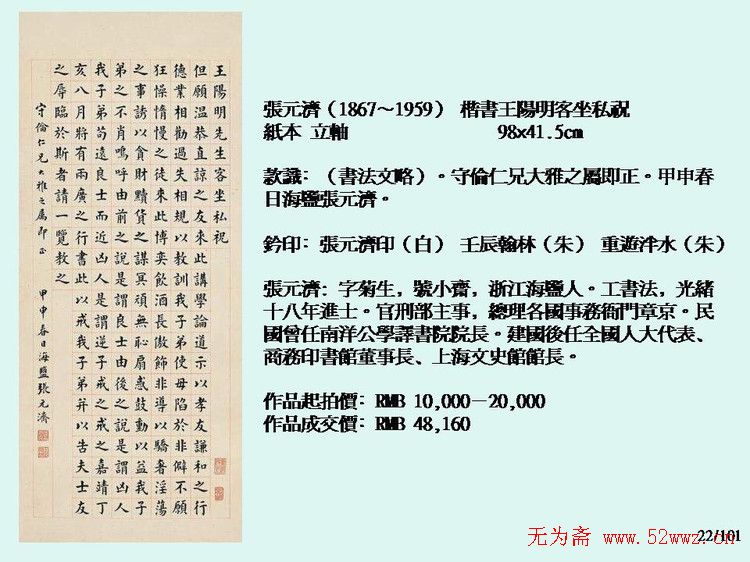 王陽明先生客坐私祝
但願温恭直諒之友來此講學論道示以孝友謙和之行
德業相勸過失相規以教訓我子弟使毋陷於非僻不願
狂懆惰慢之徒來此博奕飲酒長傲飾非導以驕奢淫蕩
之事誘以貪財黷貨之謀冥頑無恥扇惑鼓動以益我子
弟之不肖嗚呼由前之說是謂良士由後之說是謂凶人
我子弟苟遠良士而近凶人是謂逆子戒之戒之嘉靖丁
亥八月將有兩廣之行書此以戒我子弟并以告夫士友
之辱臨於斯者請一覽教之
守倫仁兄大雅之屬即正 甲申春日海鹽張元濟
張元濟（1867～1959） 楷書王陽明客坐私祝
紙本 立軸 98x41.5cm
款識：（書法文略）。守倫仁兄大雅之屬即正。甲申春
日海鹽張元濟。
鈐印：張元濟印（白） 壬辰翰林（朱） 重遊泮水（朱）
張元濟：字菊生，號小齋，浙江海鹽人。工書法，光緒
十八年進士。官刑部主事，總理各國事務衙門章京。民
國曾任南洋公學譯書院院長。建國後任全國人大代表、
商務印書館董事長、上海文史館館長。
作品起拍價：RMB 10,000－20,000
作品成交價：RMB 48,160
22/101
无为斋 www.52wwz.cn